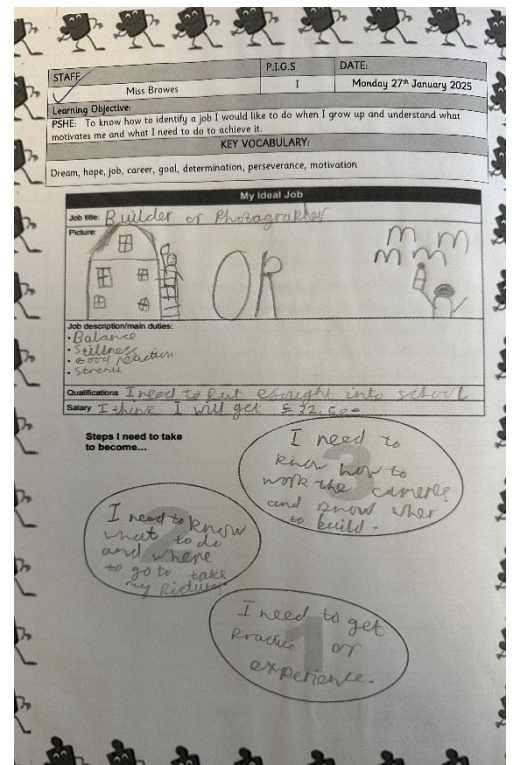 STAFF
P.I.G.S
DATE:
Miss Browes
I
Monday 27th January 2025
Learning Objective:
PSHE: To know how to identify a job I would like to do when I grow up and understand what
motivates me and what I need to do to achieve it.
KEY VOCABULARY:
Dream, hope, job, career, goal, determination, perseverance, motivation
My Ideal Job
Job title: Builder or Photagrapher
Picture:
OR
Job description/main duties:
• Balance
• Stillness
• Good reaction
• Strenth
Qualifications I need to put into school
Salary I think I will get £32,500
Steps I need to take
to become...
3
I need to
know how to
work the cameras
and know wher
to build.
2
I need to know
what to do
and where
to go to take
my
1
I need to get
Practice or
experience.